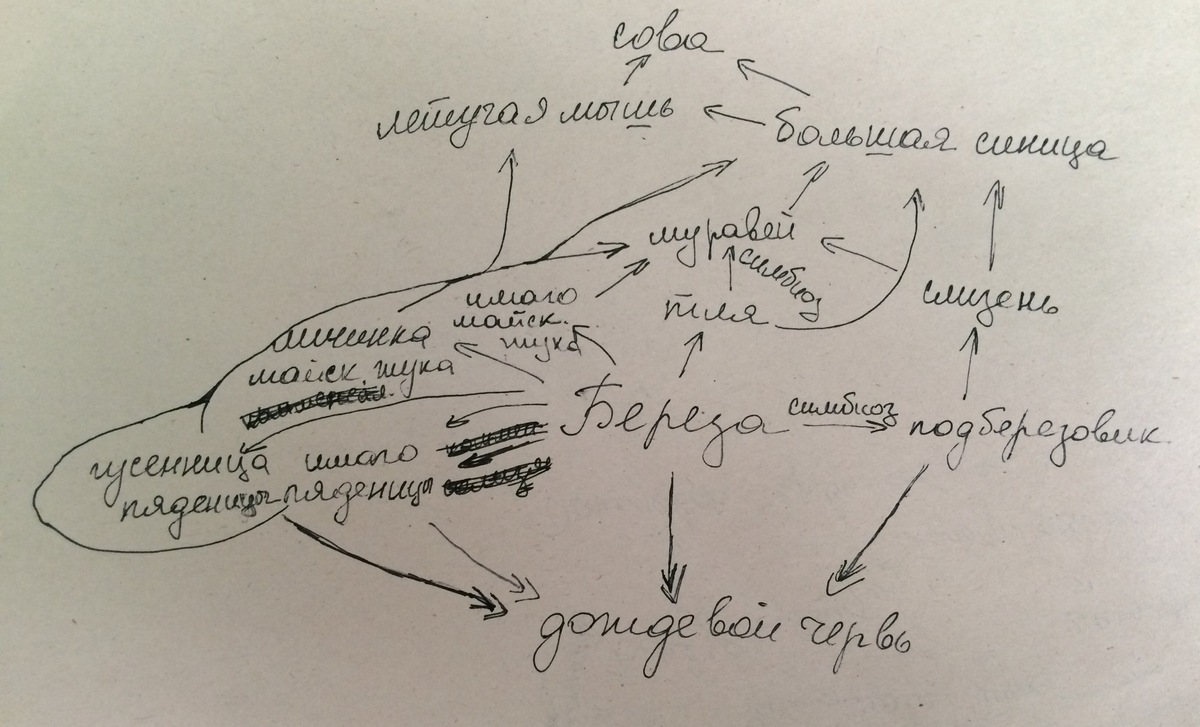 сова
летучая мышь
большая синица
муравей
симбиоз
тля
слизень
имаго
майск.
жука
личинка
майск. жука
Береза
симбиоз
подберезовик
гусенница имаго
пяденицы пяденицы
дождевой червь